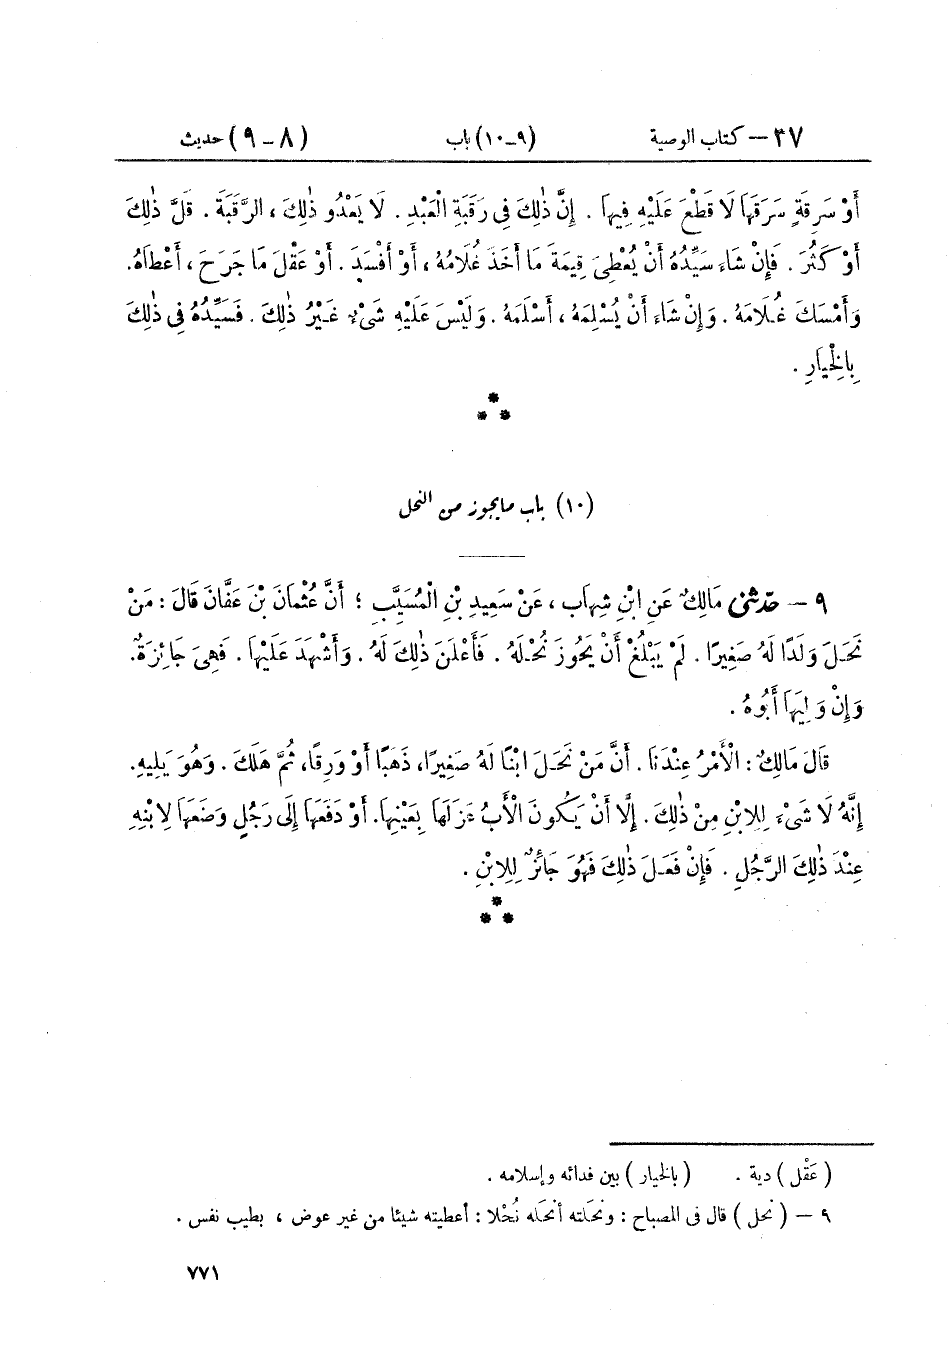 ٣٧ — كتاب الوصية (٩-١٠) باب (٨ - ٩) حديث
أَوْ سَرِقَةٍ سَرَقَهَا لَا قَطْعَ عَلَيْهِ فِيهَا . إِنَّ ذٰلِكَ فِى رَقَبَةِ الْعَبْدِ . لَا يَعْدُو ذٰلِكَ ، الرَّقَبَةَ . قَلَّ ذٰلِكَ
أَوْ كَثُرَ . فَإِنْ شَاءَ سَيِّدُهُ أَنْ يُعْطِىَ قِيمَةَ مَا أَخَذَ غُلَامُهُ ، أَوْ أَفْسَدَ . أَوْ عَقْلَ مَا جَرَحَ ، أَعْطَاهُ.
وَأَمْسَكَ غُلَامَهُ . وَإِنْ شَاءَ أَنْ يُسْلِمَهُ ، أَسْلَمَهُ . وَلَيْسَ عَلَيْهِ شَىْءٌ غَيْرُ ذٰلِكَ . فَسَيِّدُهُ فِى ذٰلِكَ
بِالْخِيَارِ .
*
* *
(١٠) باب ما يجوز من النحل
٩ — حَدَّثَنِى مَالِكٌ عَنِ ابْنِ شِهَابٍ ، عَنْ سَعِيدِ بْنِ الْمُسَيَّبِ ؛ أَنَّ عُثْمَانَ بْنَ عَفَّانَ قَالَ : مَنْ
نَحَلَ وَلَدًا لَهُ صَغِيرًا . لَمْ يَبْلُغْ أَنْ يَحُوزَ نُحْلَهُ . فَأَعْلَنَ ذٰلِكَ لَهُ . وَأَشْهَدَ عَلَيْهَا . فَهِىَ جَائِزَةٌ.
وَإِنْ وَلِيَهَا أَبُوهُ .
قَالَ مَالِكٌ : الْأَمْرُ عِنْدَنَا . أَنَّ مَنْ نَحَلَ ابْنًا لَهُ صَغِيرًا، ذَهَبًا أَوْ وَرِقًا، ثُمَّ هَلَكَ . وَهُوَ يَلِيهِ.
إِنَّهُ لَا شَىْءَ لِلِابْنِ مِنْ ذٰلِكَ . إِلَّا أَنْ يَكُونَ الْأَبُ عَزَلَهَا بِعَيْنِهَا. أَوْ دَفَعَهَا إِلَى رَجُلٍ وَضَعَهَا لِابْنِهِ
عِنْدَ ذٰلِكَ الرَّجُلِ . فَإِنْ فَعَلَ ذٰلِكَ فَهُوَ جَائِزٌ لِلِابْنِ .
*
* *
(عَقْل) دية . (بالخيار) بين فدائه وإسلامه .
٩ — (نحل) قال فى المصباح : ونحلته أنحَله نُحْلا : أعطيته شيئا من غير عوض ، بطيب نفس .
٧٧١